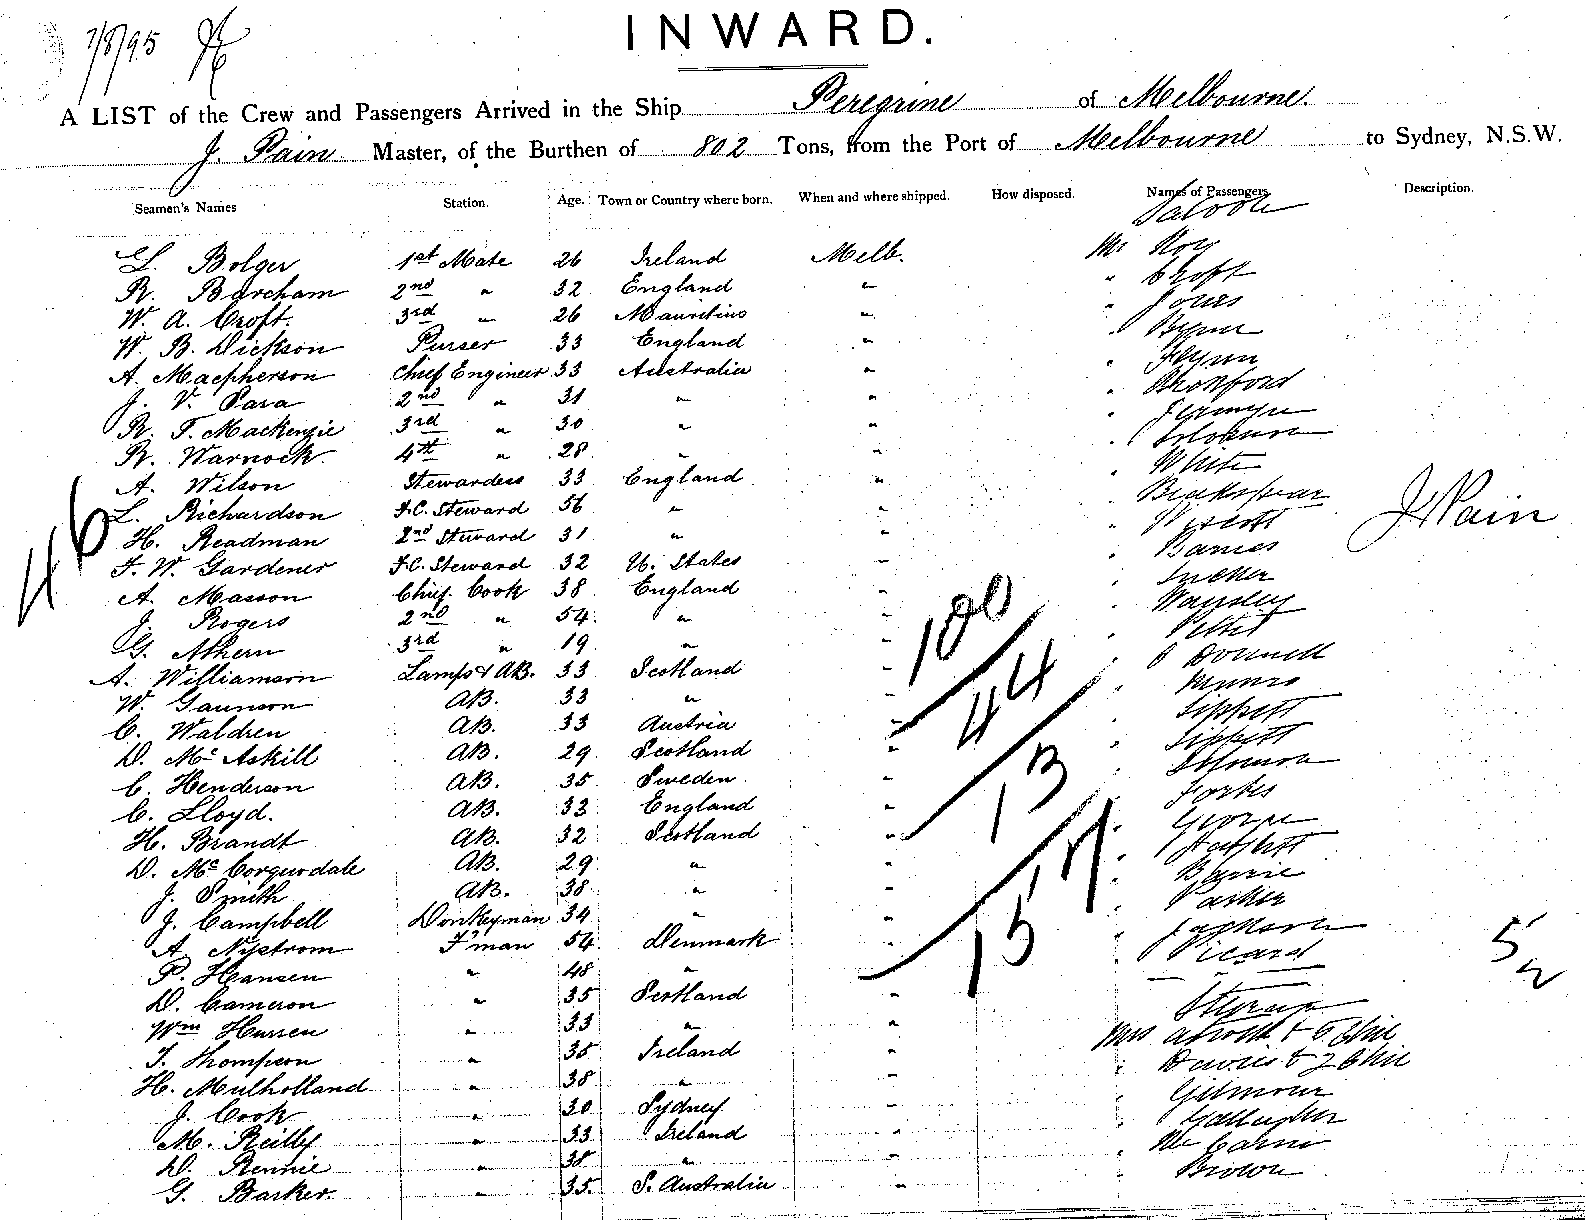 7/8/95
INWARD.
A LIST of the Crew and Passengers Arrived in the Ship Peregrine of Melbourne.
J. Pain Master, of the Burthen of 802 Tons, from the Port of Melbourne to Sydney, N.S.W.
Seamen's Names Station. Age. Town or Country where born. When and where shipped. How disposed. Names of Passengers Description.
Saloon
L. Bolger 1st Mate 26 Ireland Melb. Mr Roy
R. Barcham 2nd " 32 England " " Croft
W. A. Croft. 3rd " 26 Mauritius " "
W. B. Dickson Purser 33 England " "
A. Macpherson Chief Engineer 33 Australia " " Flynn
J. V. Para 2nd " 31 " " "
R. T. Mackenzie 3rd " 30 " " "
R. Warnock. 4th " 28 " " "
A. Wilson Stewardess 33 England " " White
L. Richardson F.C. Steward 56 " " "
H. Readman 2nd Steward 31 " " "
F. W. Gardener F.C. Steward 32 U. States " " Barnes
A. Masson Chief Cook 38 England " "
J. Rogers 2nd " 54 " " "
G. Ahern 3rd " 19 " " "
A. Williamson Lamps & AB. 33 Scotland " O'Donnell
W. Gaunson AB. 33 " " " Munro
C. Waldren AB. 33 Austria " " Tippett
D. McAskill AB. 29 Scotland " " Tippett
C. Henderson AB. 35 Sweden " "
C. Lloyd. AB. 33 England " " Forbes
H. Brandt AB. 32 Scotland " " George
D. McCorquodale AB. 29 " " "
J. Smith AB. 38 " " " Barrie
J. Campbell Donkeyman 34 " " " Parker
A. Nystrom F'man 54 Denmark " " Jackson
P. Hansen " 48 " " " Picard
D. Cameron " 35 Scotland "
Wm Hurren " 33 " " Mrs
T. Thompson " 35 Ireland " " Davies & 2 Chil
H. Mulholland " 38 " " " Gilmour
J. Cook " 30 Sydney " " Gallagher
M. Reilly " 33 Ireland " "
D. Rennie " 38 " " " Brown
G. Barker. " 35. S. Australia "
46
J. Pain
100
44
13
15
52